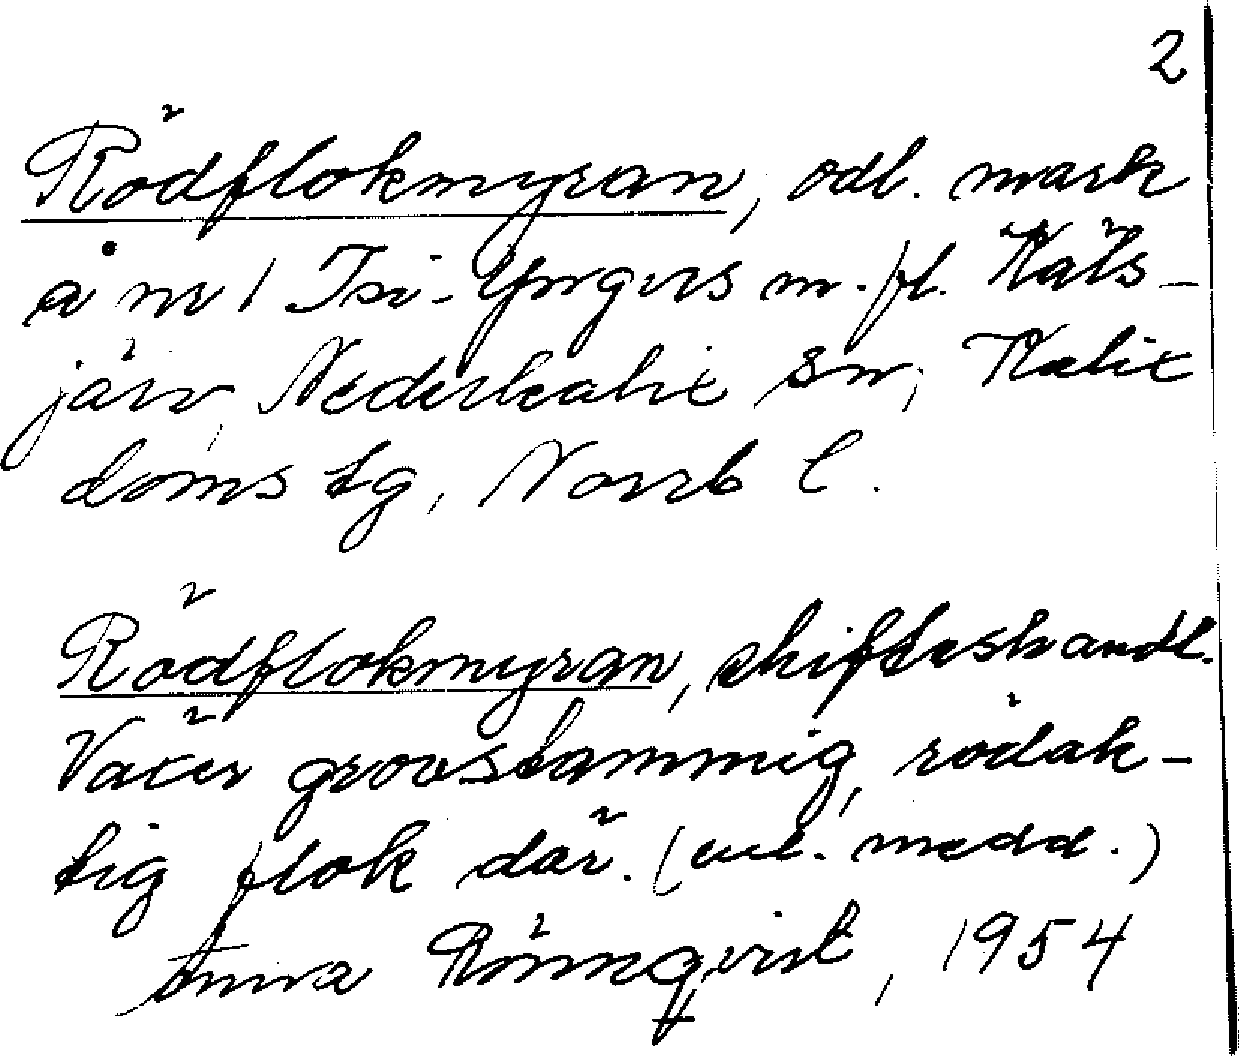 2
Rödflokmyran, odl. mark
å nr 1 Isi-Yngves m. fl. Räts-
järv, Nederkalix sn, Kalix
doms tg, Norrb l.
Rödflokmyran, skifteshandl.
Växer grovstammig, rödak-
tig flok där. (enl. medd.)
Anna Rönnqvist, 1954